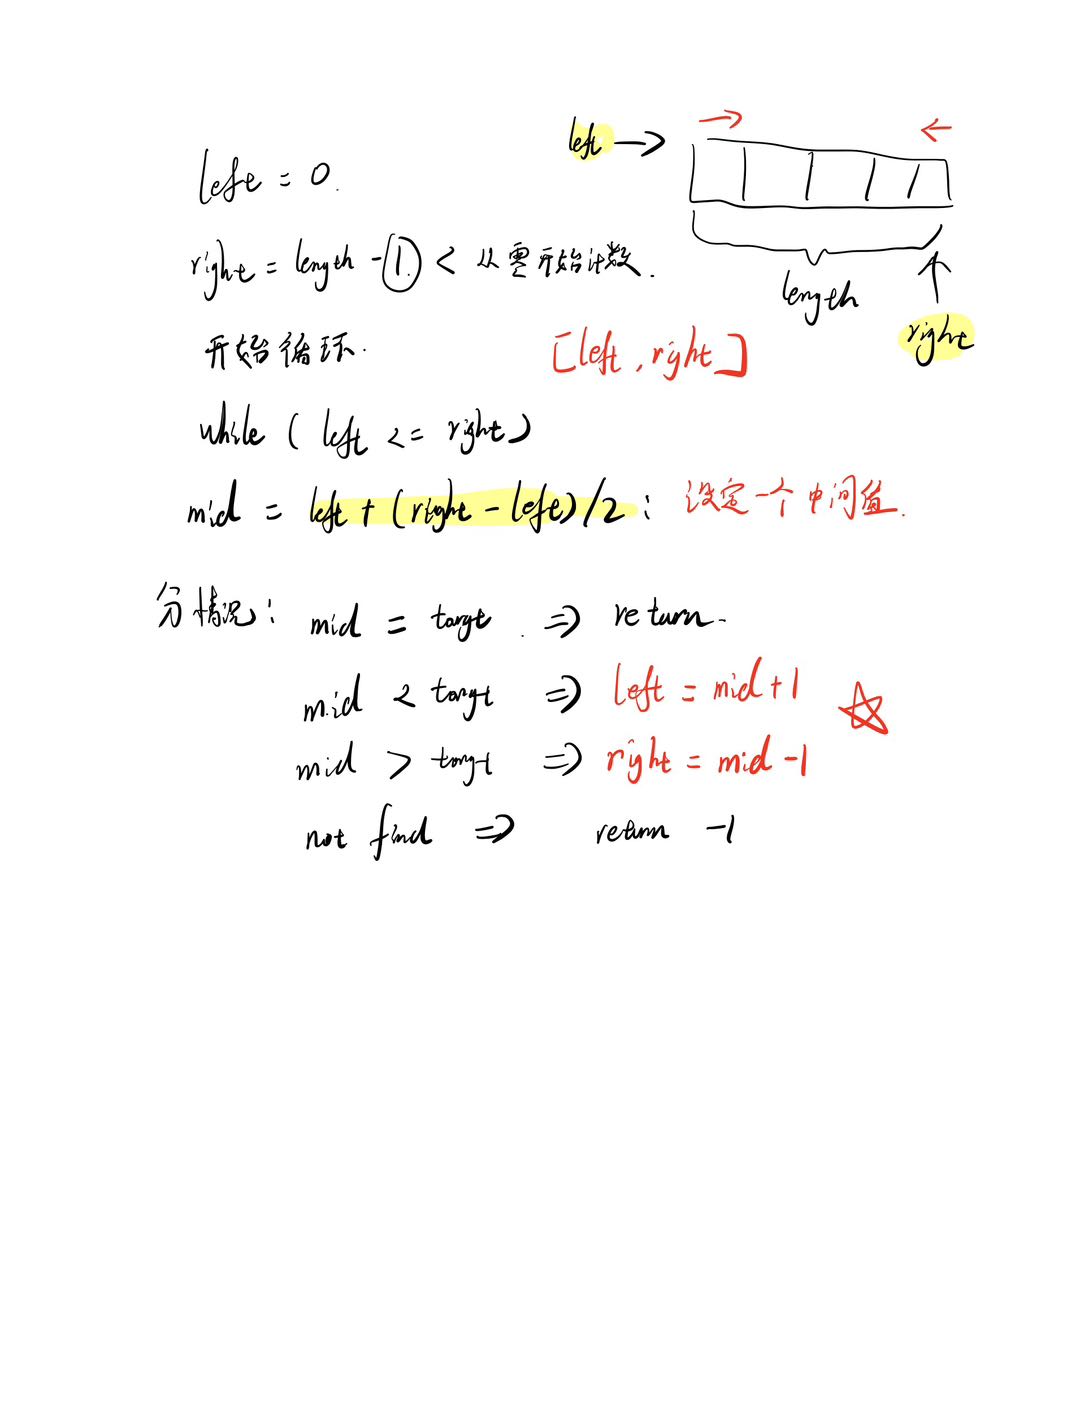 left →
left = 0.
right = length - 1 < 从零开始计数.
length
right
开始循环.
[left, right]
while ( left <= right )
mid = left + (right - left)/2 ; 设定一个中间值.
分情况: mid = target. => return.
mid < target => left = mid+1
mid > target => right = mid -1
not find => return -1